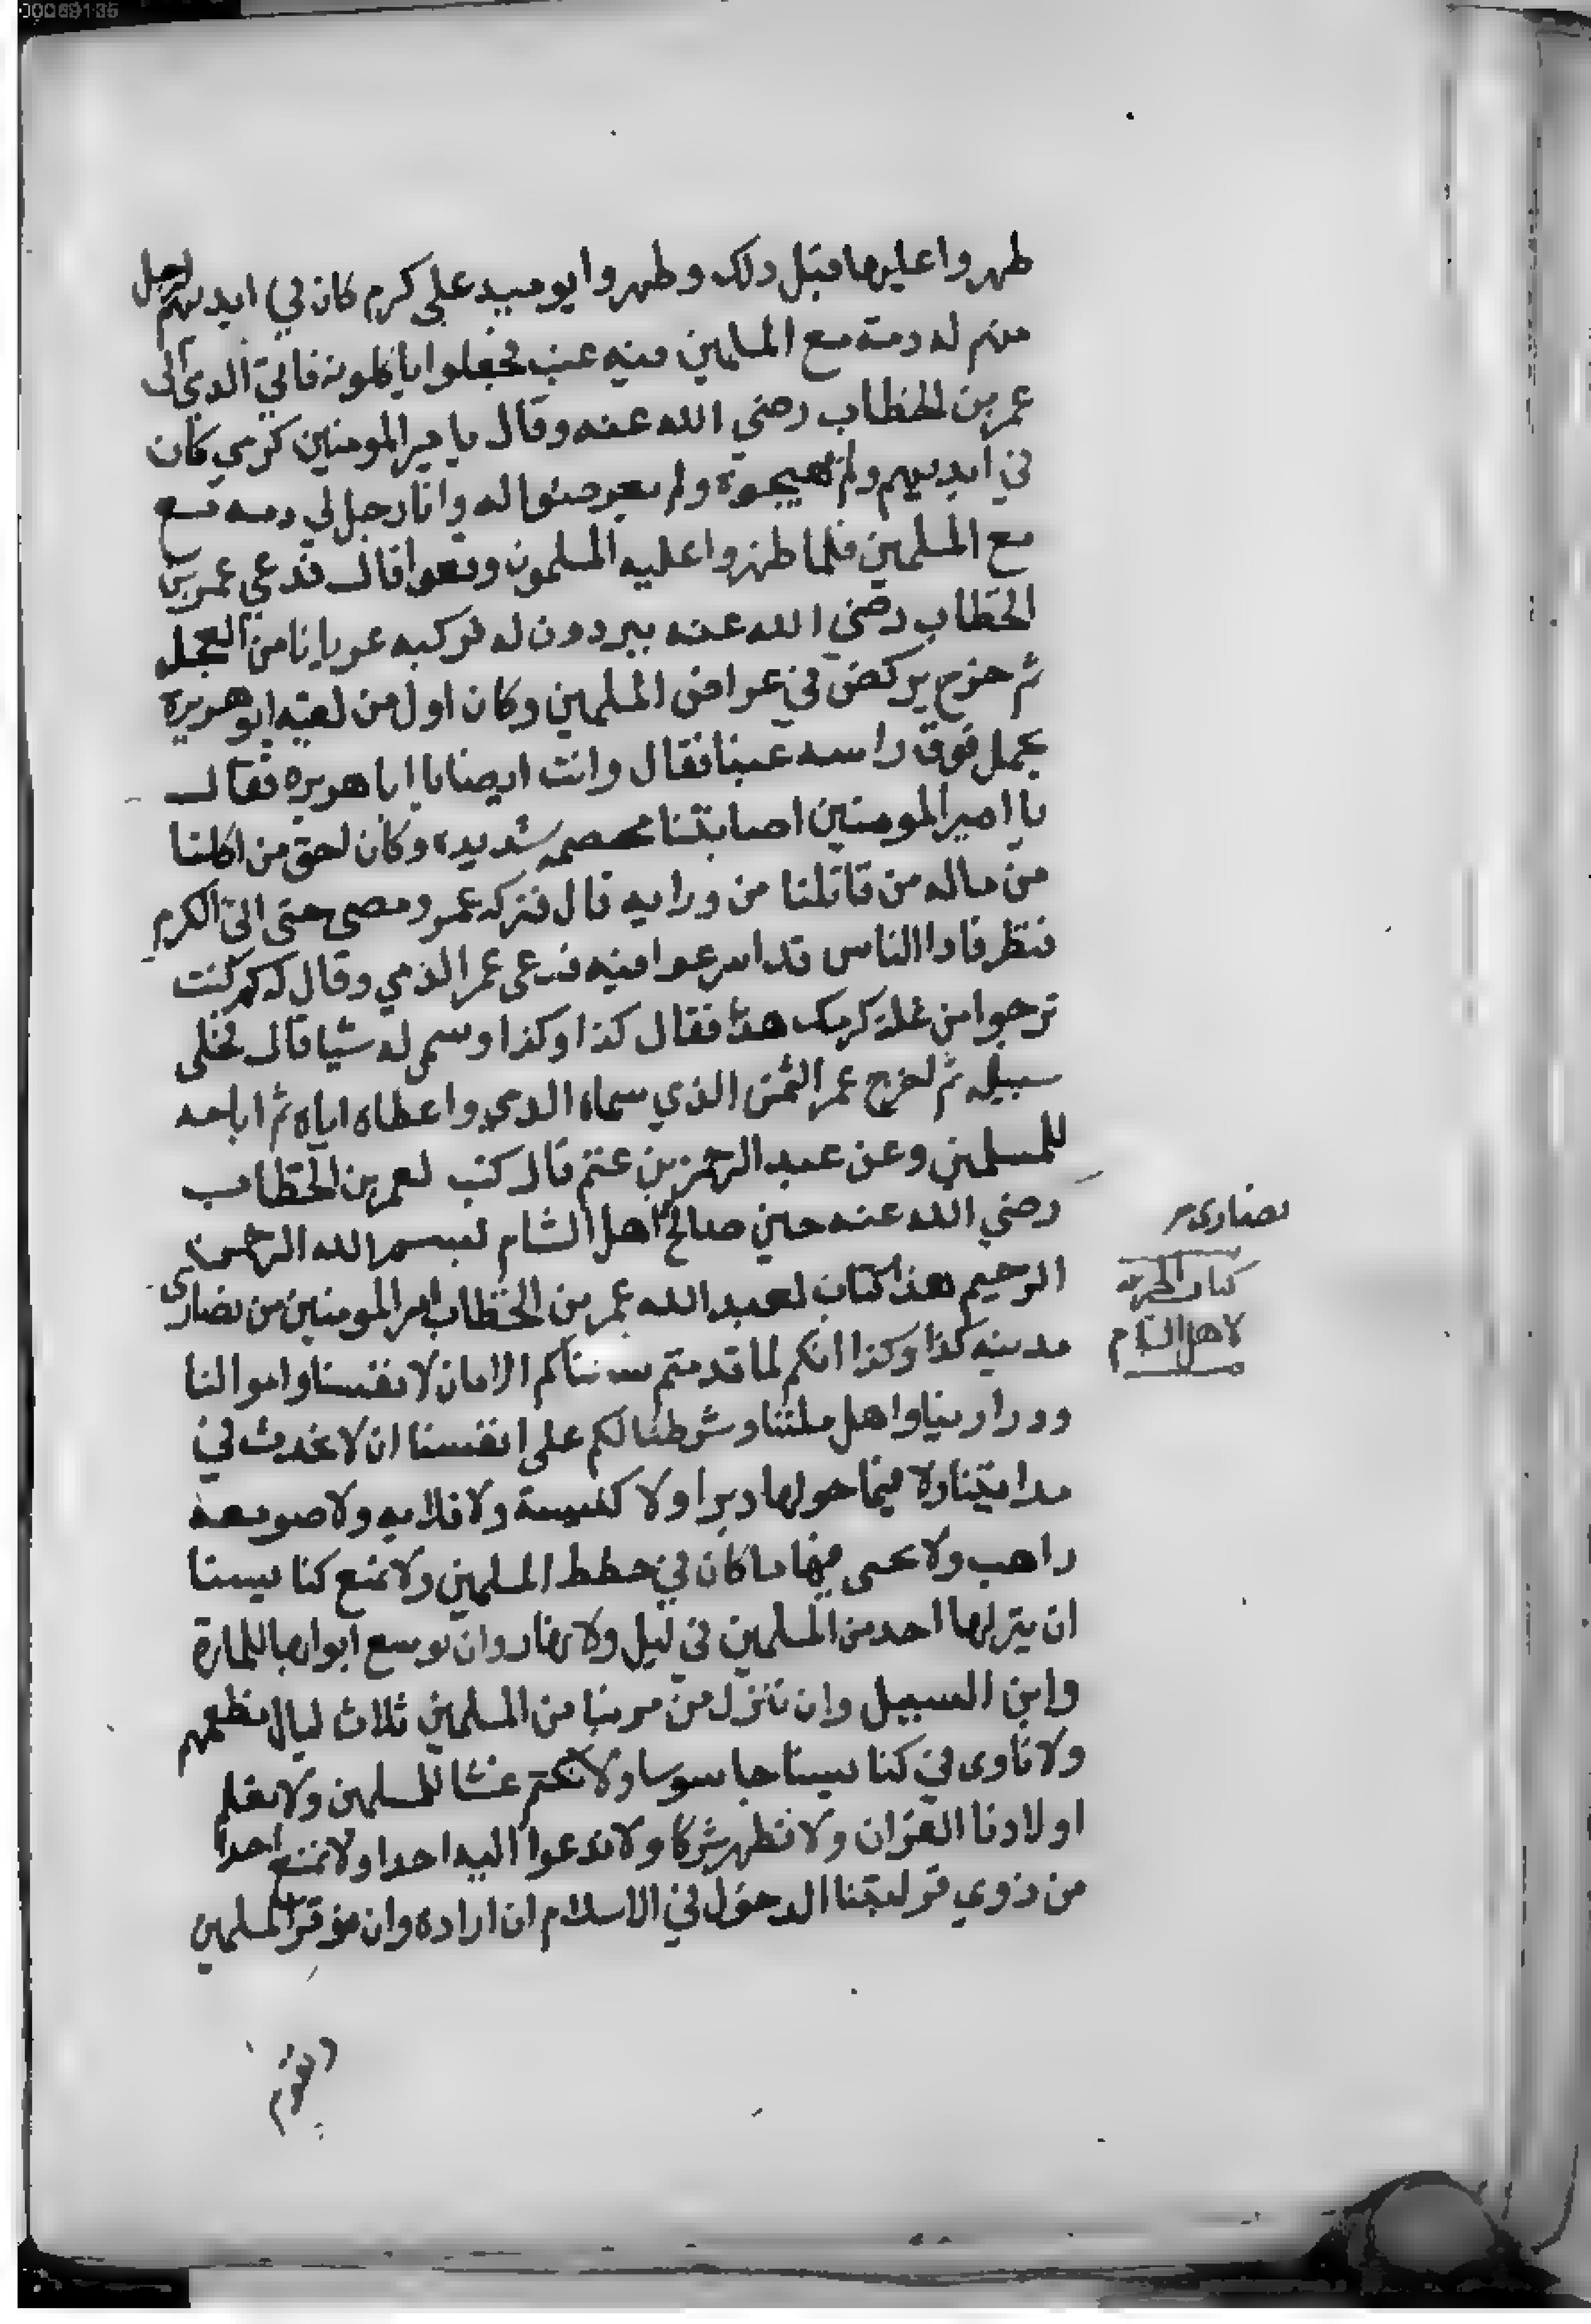 00069135
ظهروا عليها قبل ذلك وظهروا يوميد على كرم كان في ايديهم لرجل
منهم له دمة مع المسلمين فيه عنب فجعلوا ياكلونه فاتى الدمى الى
عمر بن الخطاب رضي الله عنه وقال يا امير المومنين كرمي كان
في ايديهم ولم يهيجوه ولم يعرضوا له وانا رجل لي دمه مع
مع المسلمين فلما ظهروا عليه المسلمون وقعوا قال فدعي عمر بن
الخطاب رضي الله عنه ببردون له فركبه عريانا من العجله
ثم خرج يركض في عراض المسلمين وكان اول من لقيه ابو هريرة
يحمل فوق راسه عنبا فقال وانت ايضا يا ابا هريره فقال
يا امير المومنين اصابتنا مخمصه شديده وكان احق من اكلنا
من ماله من قاتلنا من ورايه قال فتركه عمر ومضى حتى اتى الكرم
فنظر فادا الناس قد اسرعوا فيه فدعى عمر الذمي وقال له كم كنت
ترجوا من غلة كرمك هذا فقال كذا وكذا وسمى له شيا قال فخلى
سبيله ثم اخرج عمر الثمن الذي سماه الدمي واعطاه اياه ثم اباحه
للمسلمين وعن عبد الرحمن بن غنم قال كتب لعمر بن الخطاب
رضي الله عنه حين صالح اهل الشام لبسم الله الرحمن
الرحيم هذا كتاب لعبد الله عمر بن الخطاب امير المومنين من نصارى
مدينه كذا وكذا انكم لما قدمتم سالناكم الامان لانفسنا واموالنا
ودرارينا واهل ملتنا وشرطنا لكم على انفسنا ان لا نحدث في
مدايننا ولا فيما حولها ديرا ولا كنيسة ولا قلايه ولا صومعه
راهب ولا نحيى فيها ما كان في خطط المسلمين ولا نمنع كنايسنا
ان ينزلها احد من المسلمين في ليل ولا نهار وان نوسع ابوابها للمارة
وابن السبيل وان ننزل من مر بنا من المسلمين ثلاث ليال نطعمهم
ولا ناوى في كنايسنا جاسوسا ولا نكتم غشا للمسلمين ولا نعلم
اولادنا القران ولا نظهر شركا ولا ندعوا اليه احدا ولا نمنع احدا
من ذوي قرابتنا الدخول في الاسلام ان اراده وان نوقر المسلمين
نصارى
كتاب الجزيه
لاهل الشام